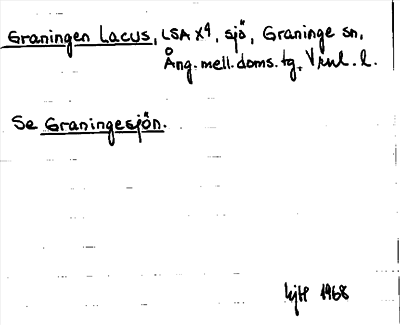 Graningen Lacus, LSA X4, sjö, Graninge sn,
Ång. mell. doms. tg, Vnl. l.
Se Graningesjön.
1968